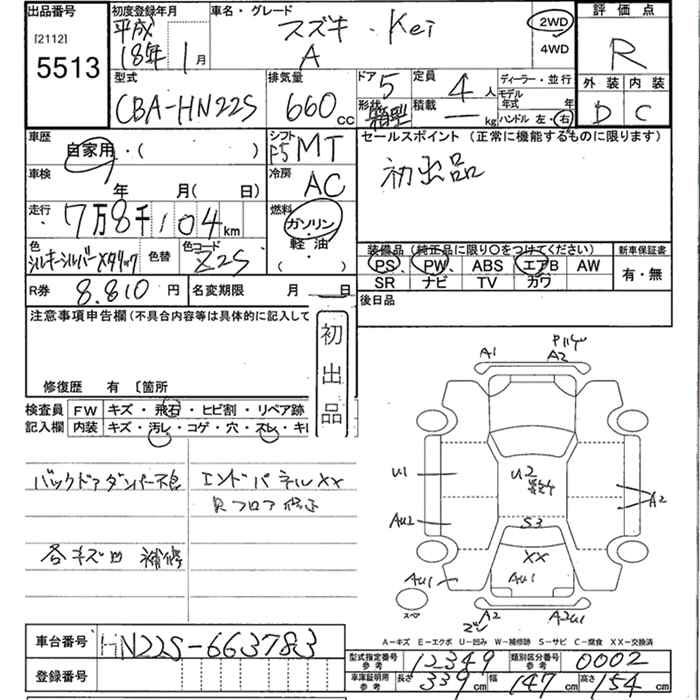 出品番号
[2112]
5513
初度登録年月
平成
18年 1月
車名・グレード
スズキ・Kei
A
2WD
4WD
評価点
R
外装 内装
D C
型式
CBA-HN22S
排気量
660 cc
ドア 5
形状 箱型
定員 4 人
積載 — kg
ディーラー・並行
モデル年式 年
ハンドル 左・右
車歴
自家用・(
シフト
F5 MT
セールスポイント (正常に機能するものに限ります)
初出品
車検
年 月( 日)
冷房
AC
走行
7万8千104 km
燃料
ガソリン
軽・油
( )
色
シルキーシルバーメタリック
色替
色コード
Z2S
装備品 (純正品に限り○をつけてください)
PS PW ABS エアB AW
SR ナビ TV カワ
新車保証書
有・無
R券 8.810 円
名変期限 月 日
後日品
注意事項申告欄 (不具合内容等は具体的に記入して
初出品
修復歴 有 〔箇所
検査員記入欄
FW キズ・飛石・ヒビ割・リペア跡
内装 キズ・汚レ・コゲ・穴・スレ・キレ
バックドアダンパー不良
エンドパネルXX
Rフロア修正
各キズ凹 補修
A1
A2
U1
U2
A2
AU2
S3
XX
AU1
AU1
スペア
A2
A2U1
A-キズ E-エクボ U-凹み W-補修跡 S-サビ C-腐食 XX-交換済
車台番号
HN22S-663783
登録番号
型式指定番号 参考 12349
類別区分番号 参考 0002
車庫証明用 参考 長さ 339 cm 幅 147 cm 高さ 154 cm